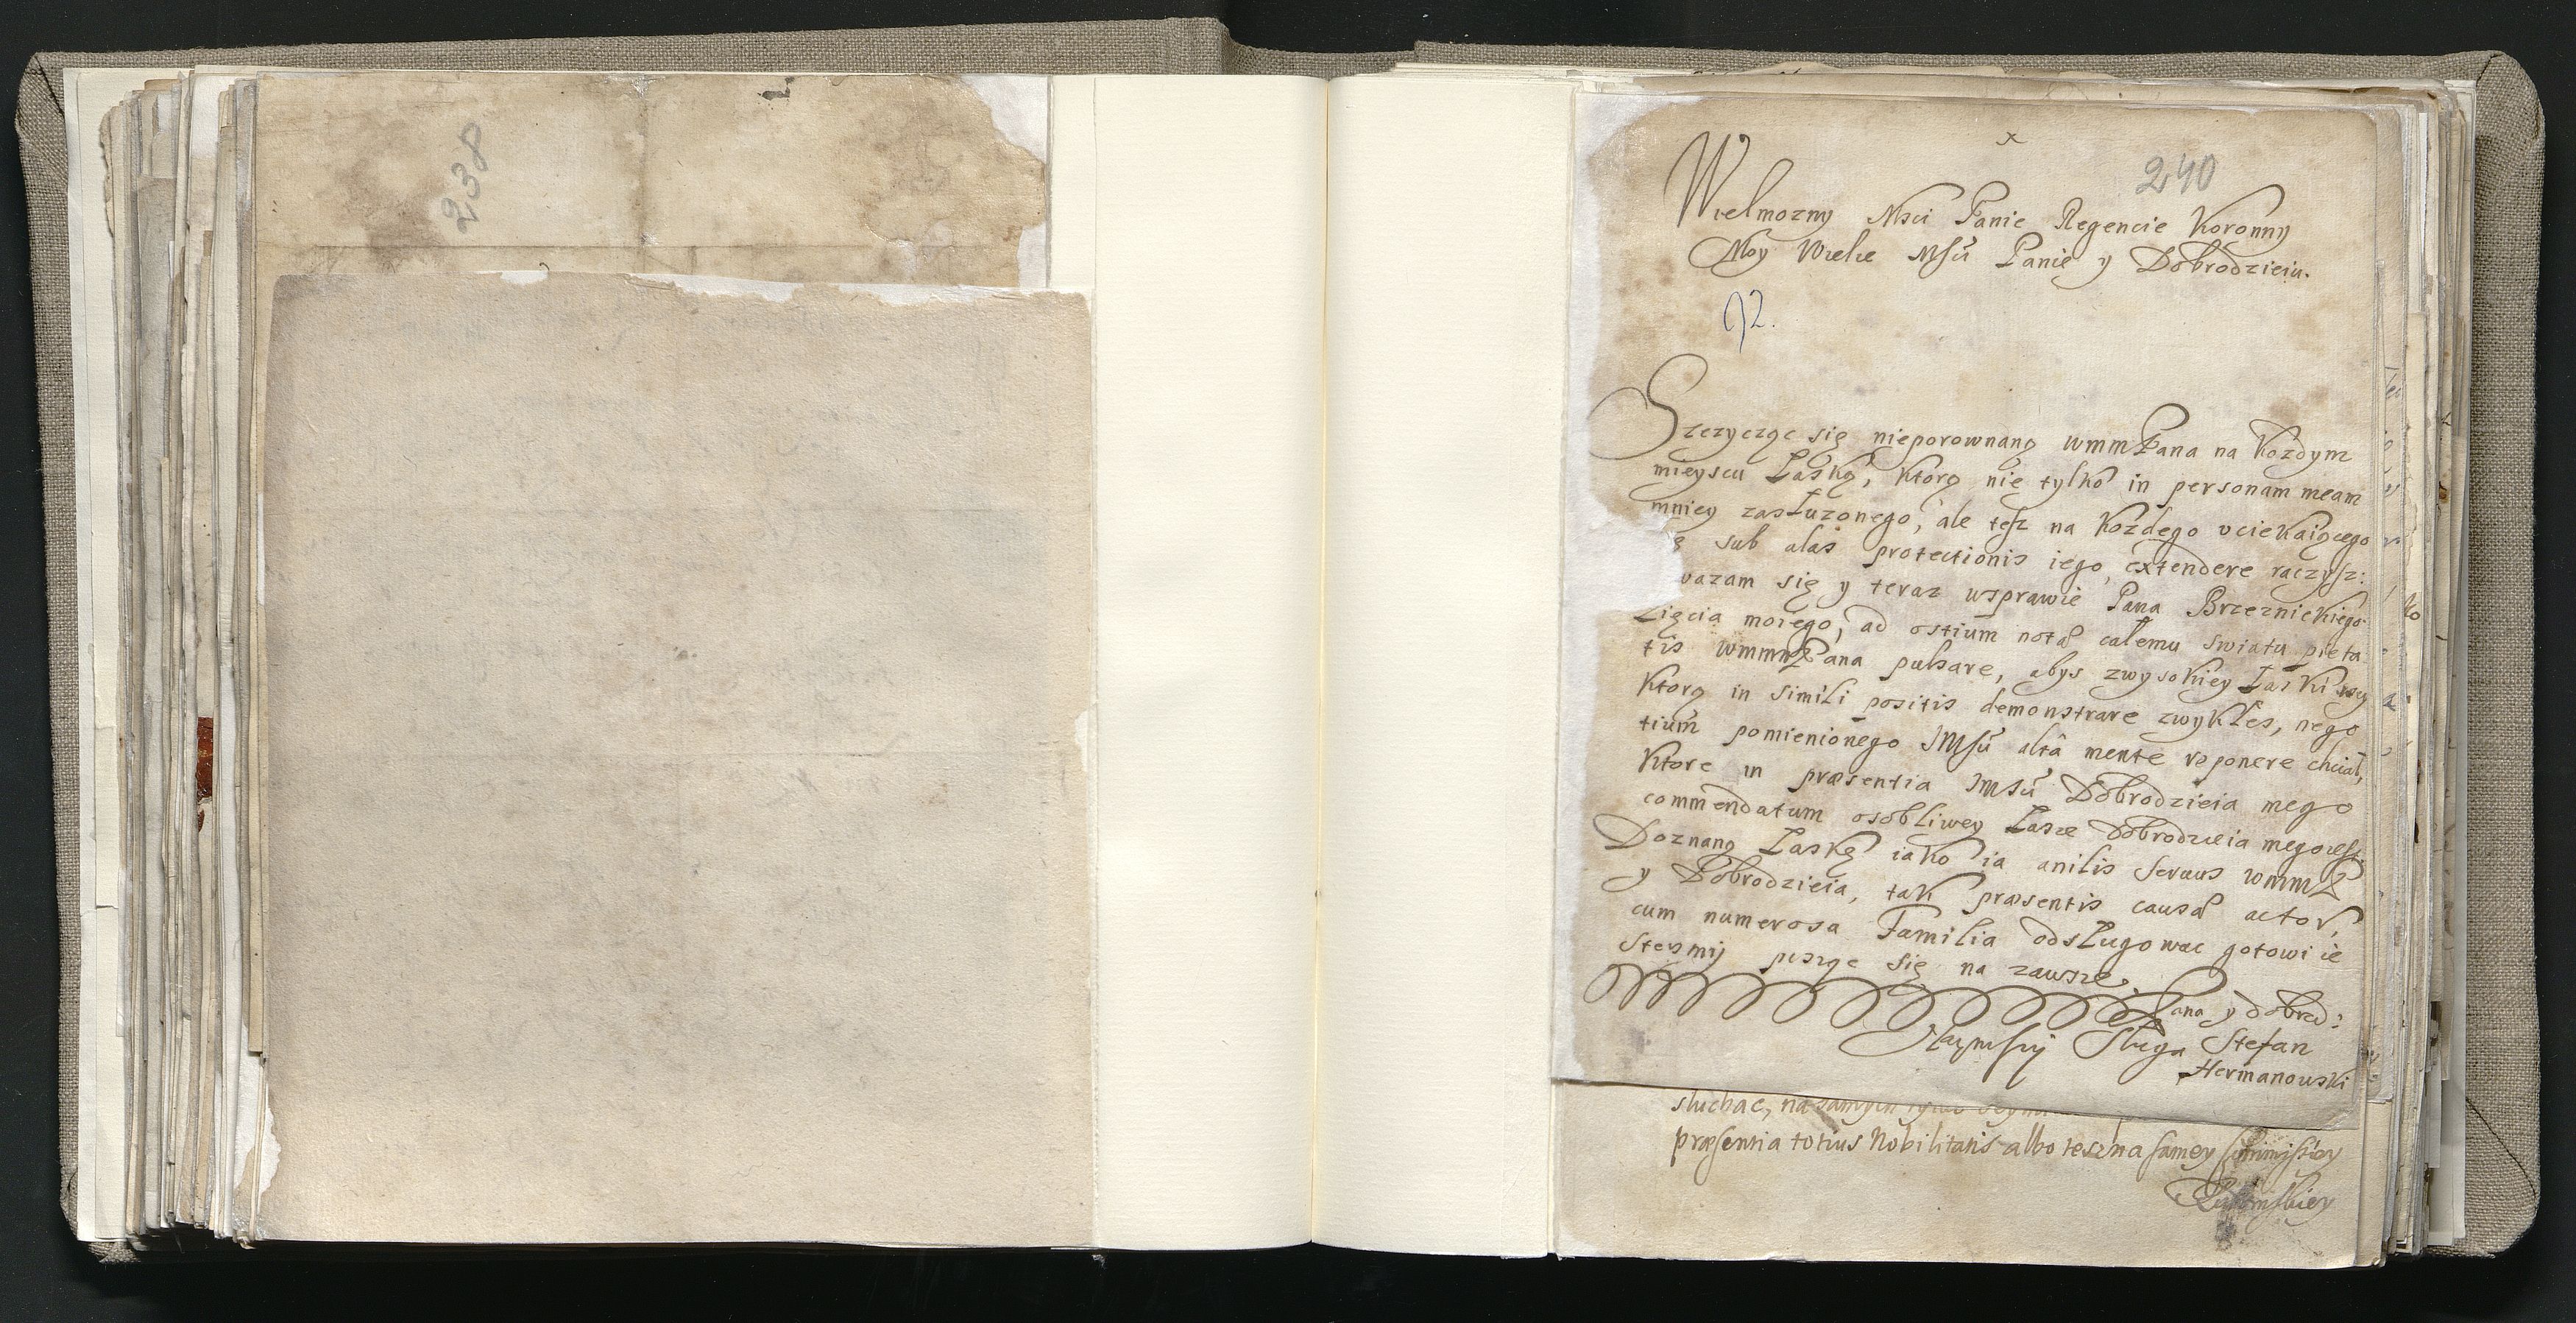 238
x
240
Wielmozny Msci Panie Regencie Koronny
Moy Wielce MSCi Panie y Dobrodzieiu.
92.
Szczycząc się nieporownaną wmmPana na Kozdym
mieyscu Łaską, Ktorą nie tylko in personam meam
mniey zasłuzonego, ale tesz na Kozdego vciekaiącego
ę sub alas protectionis iego, extendere raczysz:
wazam się y teraz wsprawie Pana Brzeznickiego
Zięcia moiego, ad ostium notæ całemu swiatu pieta
tis wmmmPana pulsare, abys zwysokiey Łaski swy
Ktorą in simili positis demonstrare zwykłes, nego
tium pomienionego JMSci altâ mente reponere chciał,
Ktore in præsentia JMSci Dobrodzieia mego
commendatum osobliwey Łasce Dobrodzieia mego iest.
Doznaną Łaskę iako ia anilis servus wmmP
y Dobrodzieia, tak præsentis causæ actor,
cum numerosa Familia odsługowac gotowi ie
stesmy pisząc się na zawsze.
Pana y dobrod:
Sługa Stefan
Hermanowski
słuchac, na samym
præsentia totius Nobilitatis albo tesz na samey